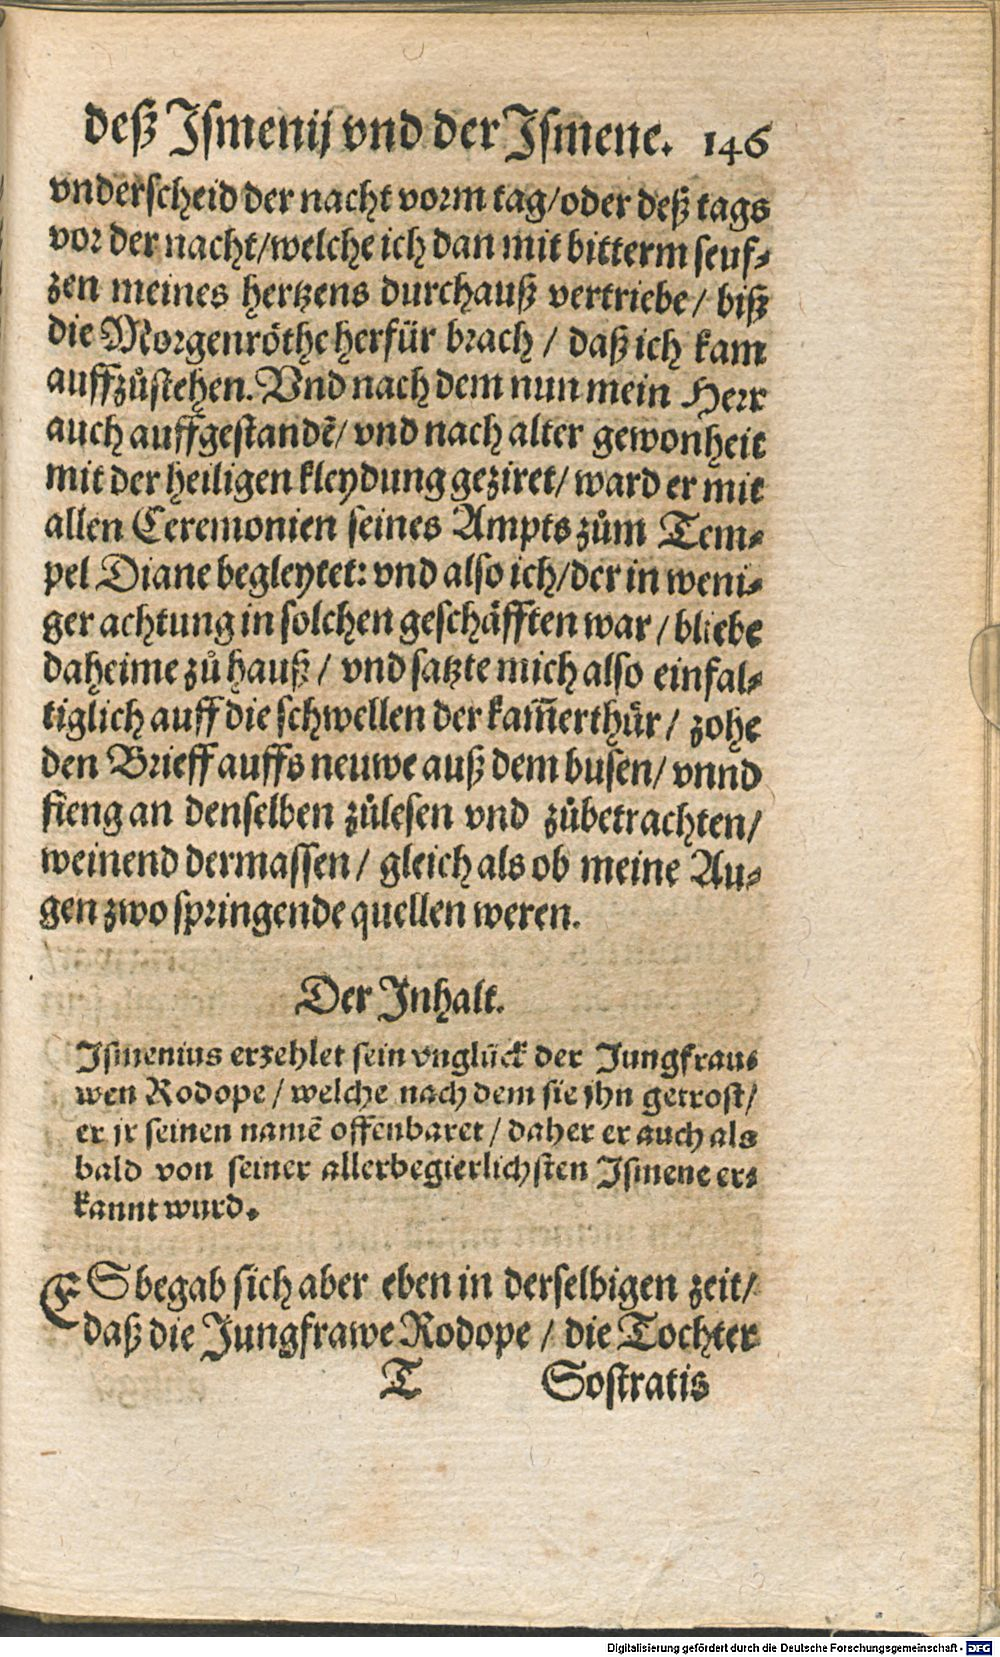 deß Ismenij vnd der Ismene. 146
vnderscheid der nacht vorm tag/oder deß tags
vor der nacht/welche ich dan mit bitterm seuf⸗
zen meines hertzens durchauß vertriebe/ biß
die Morgenröthe herfür brach / daß ich kam
auffzůstehen. Vnd nach dem nun mein Herr
auch auffgestandẽ/ vnd nach alter gewonheit
mit der heiligen kleydung geziret/ ward er mit
allen Ceremonien seines Ampts zům Tem⸗
pel Diane begleytet: vnd also ich/der in weni⸗
ger achtung in solchen geschäfften war / bliebe
daheime zů hauß / vnd satzte mich also einfal⸗
tiglich auff die schwellen der kam̃erthür / zohe
den Brieff auffs neuwe auß dem busen/ vnnd
fieng an denselben zůlesen vnd zůbetrachten/
weinend dermassen / gleich als ob meine Au⸗
gen zwo springende quellen weren.
Der Inhalt.
Ismenius erzehlet sein vnglück der Jungfrau⸗
wen Rodope / welche nach dem sie jhn getrost/
er jr seinen namẽ offenbaret / daher er auch als
bald von seiner allerbegierlichsten Ismene er⸗
kannt wurd.
ES begab sich aber eben in derselbigen zeit/
daß die Jungfrawe Rodope / die Tochter
T Sostratis
Digitalisierung gefördert durch die Deutsche Forschungsgemeinschaft - DFG